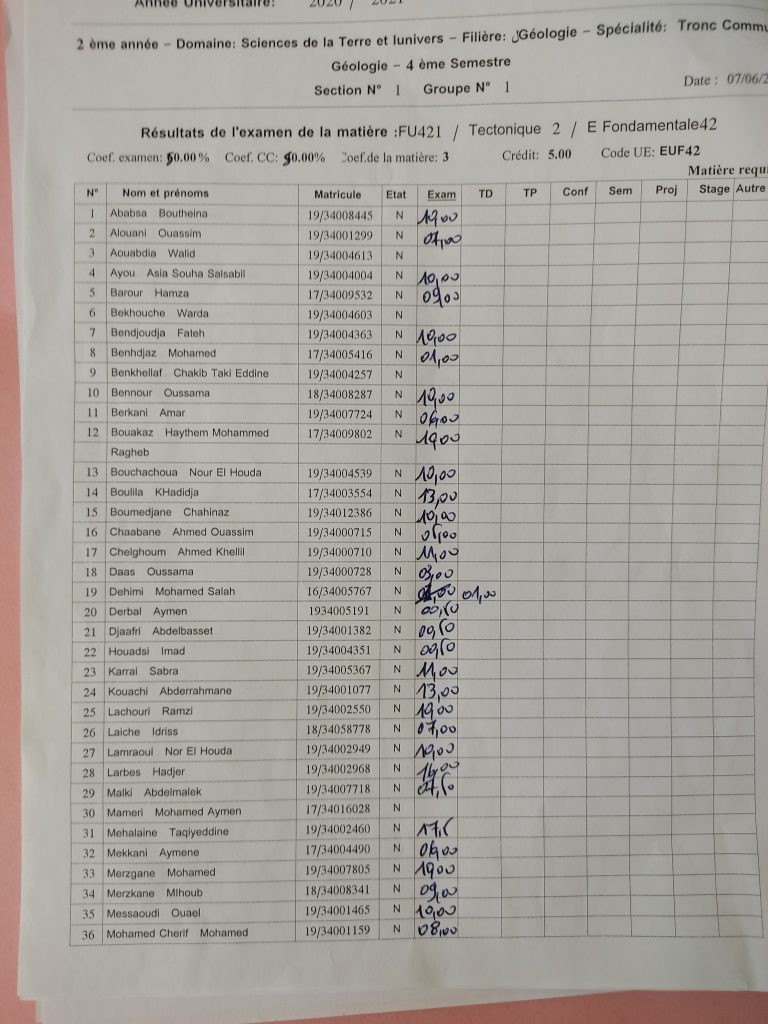 Année Universitaire: 2020 / 2021
2 ème année – Domaine: Sciences de la Terre et lunivers – Filière: Géologie – Spécialité: Tronc Commu
Géologie – 4 ème Semestre
Section N° 1 Groupe N° 1
Date : 07/06/2
Résultats de l'examen de la matière :FU421 / Tectonique 2 / E Fondamentale42
Coef. examen: 50.00 % Coef. CC: 50.00% Coef.de la matière: 3 Crédit: 5.00 Code UE: EUF42
Matière requi
N° Nom et prénoms Matricule Etat Exam TD TP Conf Sem Proj Stage Autre
1 Ababsa Boutheina 19/34008445 N 10,00
2 Alouani Ouassim 19/34001299 N 07,00
3 Aouabdia Walid 19/34004613 N
4 Ayou Asia Souha Salsabil 19/34004004 N 10,00
5 Barour Hamza 17/34009532 N 09,00
6 Bekhouche Warda 19/34004603 N
7 Bendjoudja Fateh 19/34004363 N 10,00
8 Benhdjaz Mohamed 17/34005416 N 01,00
9 Benkhellaf Chakib Taki Eddine 19/34004257 N
10 Bennour Oussama 18/34008287 N 10,00
11 Berkani Amar 19/34007724 N 06,00
12 Bouakaz Haythem Mohammed 17/34009802 N 10,00
Ragheb
13 Bouchachoua Nour El Houda 19/34004539 N 10,00
14 Boulila KHadidja 17/34003554 N 13,00
15 Boumedjane Chahinaz 19/34012386 N 10,00
16 Chaabane Ahmed Ouassim 19/34000715 N
17 Chelghoum Ahmed Khellil 19/34000710 N 11,00
18 Daas Oussama 19/34000728 N 03,00
19 Dehimi Mohamed Salah 16/34005767 N 01,00
20 Derbal Aymen 1934005191 N 00,50
21 Djaafri Abdelbasset 19/34001382 N 00,50
22 Houadsi Imad 19/34004351 N 00,50
23 Karrai Sabra 19/34005367 N 11,00
24 Kouachi Abderrahmane 19/34001077 N 13,00
25 Lachouri Ramzi 19/34002550 N 10,00
26 Laiche Idriss 18/34058778 N 07,00
27 Lamraoui Nor El Houda 19/34002949 N 10,00
28 Larbes Hadjer 19/34002968 N
29 Malki Abdelmalek 19/34007718 N 07,50
30 Mameri Mohamed Aymen 17/34016028 N
31 Mehalaine Taqiyeddine 19/34002460 N 17,5
32 Mekkani Aymene 17/34004490 N 06,00
33 Merzgane Mohamed 19/34007805 N 10,00
34 Merzkane Mlhoub 18/34008341 N 09,00
35 Messaoudi Ouael 19/34001465 N 10,00
36 Mohamed Cherif Mohamed 19/34001159 N 08,00